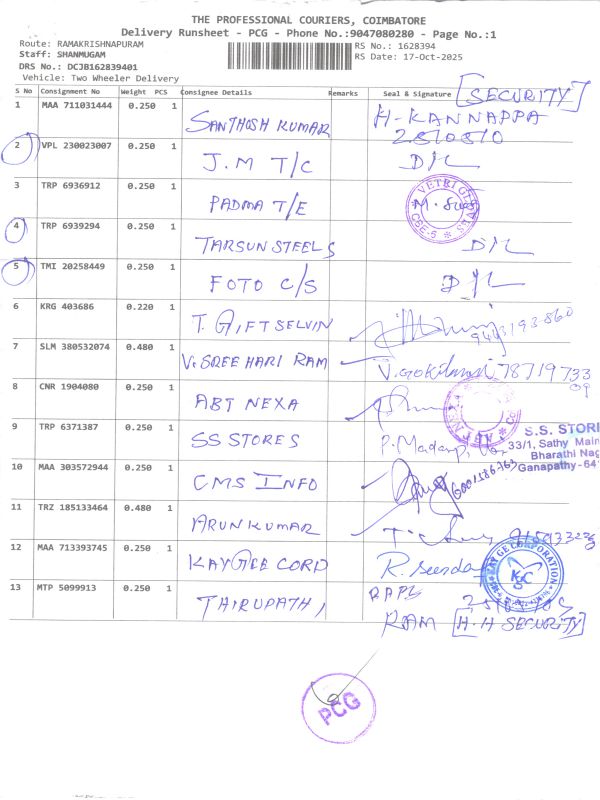 THE PROFESSIONAL COURIERS, COIMBATORE
Delivery Runsheet - PCG - Phone No.:9047080280 - Page No.:1
Route: RAMAKRISHNAPURAM RS No.: 1628394
Staff: SHANMUGAM RS Date: 17-Oct-2025
DRS No.: DCJB162839401
Vehicle: Two Wheeler Delivery
S No Consignment No Weight PCS Consignee Details Remarks Seal & Signature [SECURITY]
1 MAA 711031444 0.250 1 SANTHOSH KUMAR H-KANNAPPA
2 VPL 230023007 0.250 1 J.M T/C D/L
3 TRP 6936912 0.250 1 PADMA T/E VETRI CBE-6
4 TRP 6939294 0.250 1 TARSUN STEELS D/L
5 TMI 20258449 0.250 1 FOTO C/S D/L
6 KRG 403686 0.220 1 T. GIFT SELVIN
7 SLM 380532074 0.480 1 V. SREE HARI RAM 78719733
8 CNR 1904080 0.250 1 ABT NEXA
9 TRP 6371387 0.250 1 SS STORES S.S. STORI
33/1, Sathy Main
Bharathi Nag
Ganapathy - 641
10 MAA 303572944 0.250 1 CMS INFO
11 TRZ 185133464 0.480 1 ARUN KUMAR
12 MAA 713393745 0.250 1 KAYGEE CORP KAY GE CORPORATION
13 MTP 5099913 0.250 1 THIRUPATHI
RAM [H.H SECURITY]
PCG